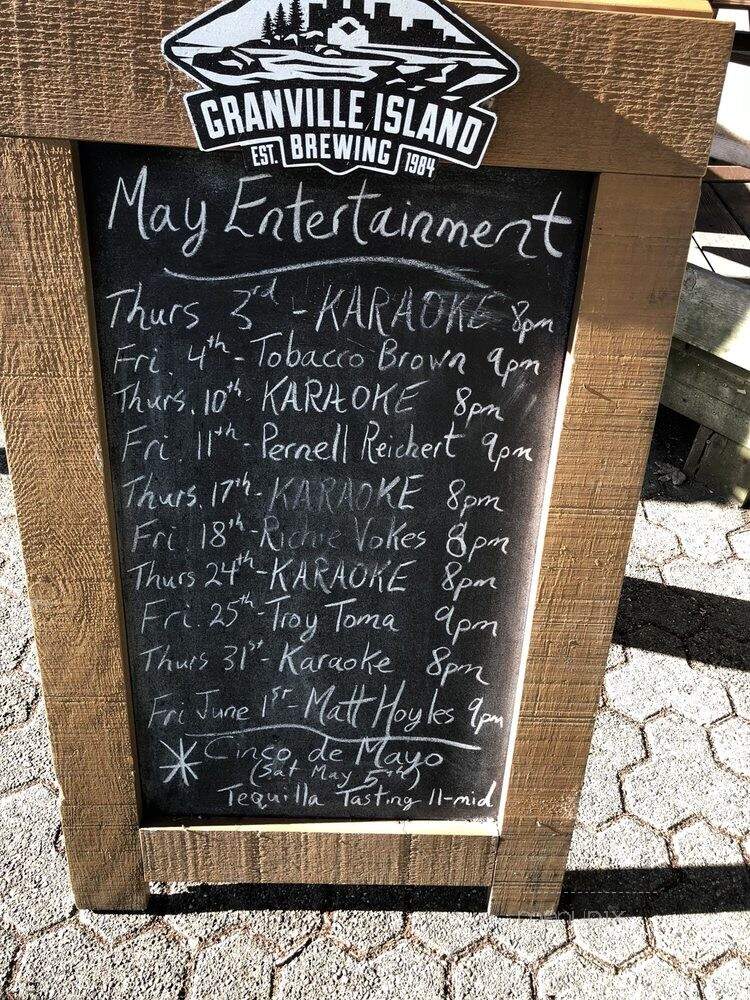 GRANVILLE ISLAND
EST. BREWING 1984
May Entertainment
Thurs 3rd - KARAOKE 8pm
Fri. 4th - Tobacco Brown 9pm
Thurs. 10th KARAOKE 8pm
Fri. 11th - Pernell Reichert 9pm
Thurs. 17th - KARAOKE 8pm
Fri. 18th - Richie Vokes 8pm
Thurs 24th - KARAOKE 8pm
Fri. 25th - Troy Toma 9pm
Thurs 31st - Karaoke 8pm
Fri June 1st - Matt Hoyles 9pm
* Cinco de Mayo
(Sat May 5th)
Tequilla Tasting 11-mid